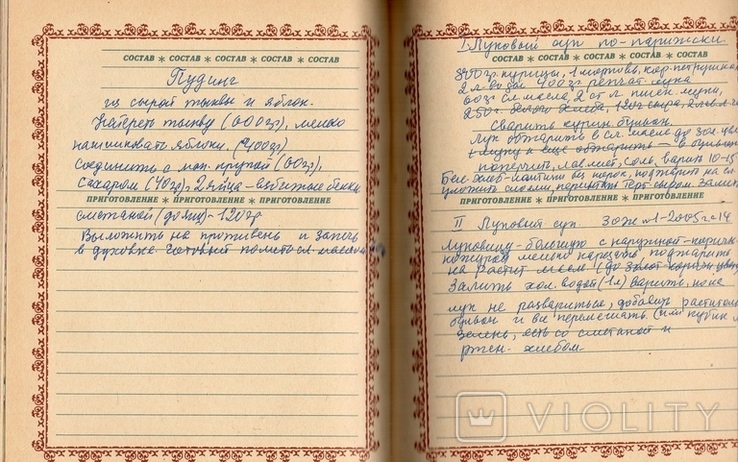 СОСТАВ * СОСТАВ * СОСТАВ * СОСТАВ * СОСТАВ
Пудинг
из сырой тыквы и яблок.
Натереть тыкву (600гр), мелко
нашинковать яблоки. (400гр)
Соединить с ман. крупой (60гр),
сахаром (40гр), 2 яйца - взбитые белки
ПРИГОТОВЛЕНИЕ * ПРИГОТОВЛЕНИЕ * ПРИГОТОВЛЕНИЕ
сметаной - 120гр
Выложить на противень и запечь
в духовке. Готовый полить сл. маслом
I Луковый суп по-парижски
СОСТАВ * СОСТАВ * СОСТАВ * СОСТАВ * СОСТАВ
курицы, 1 морковь, кор. петрушки
2 л воды 400гр репчат. лука
60гр сл. масла, 2 ст. л. пшен. муки,
250г. белого хлеба, 120г сыра,
Сварить курин. бульон.
Лук обжарить в сл. масле до зол. цв.
и еще обжарить - в бульон
поперчить, лав. лист, соль, варить 10-15
Бел. хлеб - ломтики без корок, поджарить на сл.
уложить слоями, терт. сыром.
ПРИГОТОВЛЕНИЕ * ПРИГОТОВЛЕНИЕ * ПРИГОТОВЛЕНИЕ
II Луковый суп ЗОЖ №1-2005г. с14
Луковицу - большую с наружной коричн.
кожурой мелко нарезать, поджарить
на растит. масле (до
Залить хол. водой (1л) варить, пока
лук не разварится, добавить
бульон и все перемешать. (или кубик
зелень, есть со сметаной и
ржан. хлебом.
VIOLITY